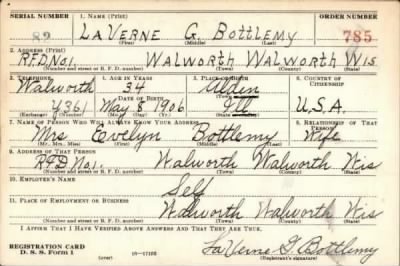 SERIAL NUMBER 1. NAME (Print) ORDER NUMBER
82 LaVERNE G. BOTTLEMY 785
(First) (Middle) (Last)
2. ADDRESS (Print)
RFD No1. WALWORTH WALWORTH WIS
(Number and street or R. F. D. number) (Town) (County) (State)
3. TELEPHONE 4. AGE IN YEARS 5. PLACE OF BIRTH 6. COUNTRY OF CITIZENSHIP
Walworth 34 Alden
DATE OF BIRTH
Y361 May 8 1906 Ill U.S.A.
(Exchange) (Number) (Mo.) (Day) (Yr.) (State or country)
7. NAME OF PERSON WHO WILL ALWAYS KNOW YOUR ADDRESS 8. RELATIONSHIP OF THAT PERSON
Mrs Evelyn Bottlemy Wife
(Mr., Mrs., Miss) (First) (Middle) (Last)
9. ADDRESS OF THAT PERSON
RFD No1. Walworth Walworth Wis
(Number and street or R. F. D. number) (Town) (County) (State)
10. EMPLOYER'S NAME
Self
11. PLACE OF EMPLOYMENT OR BUSINESS
Walworth Walworth Wis
(Number and street or R. F. D. number) (Town) (County) (State)
I AFFIRM THAT I HAVE VERIFIED ABOVE ANSWERS AND THAT THEY ARE TRUE.
REGISTRATION CARD
D. S. S. Form 1 16—17105 LaVerne G. Bottlemy
(Registrant's signature)